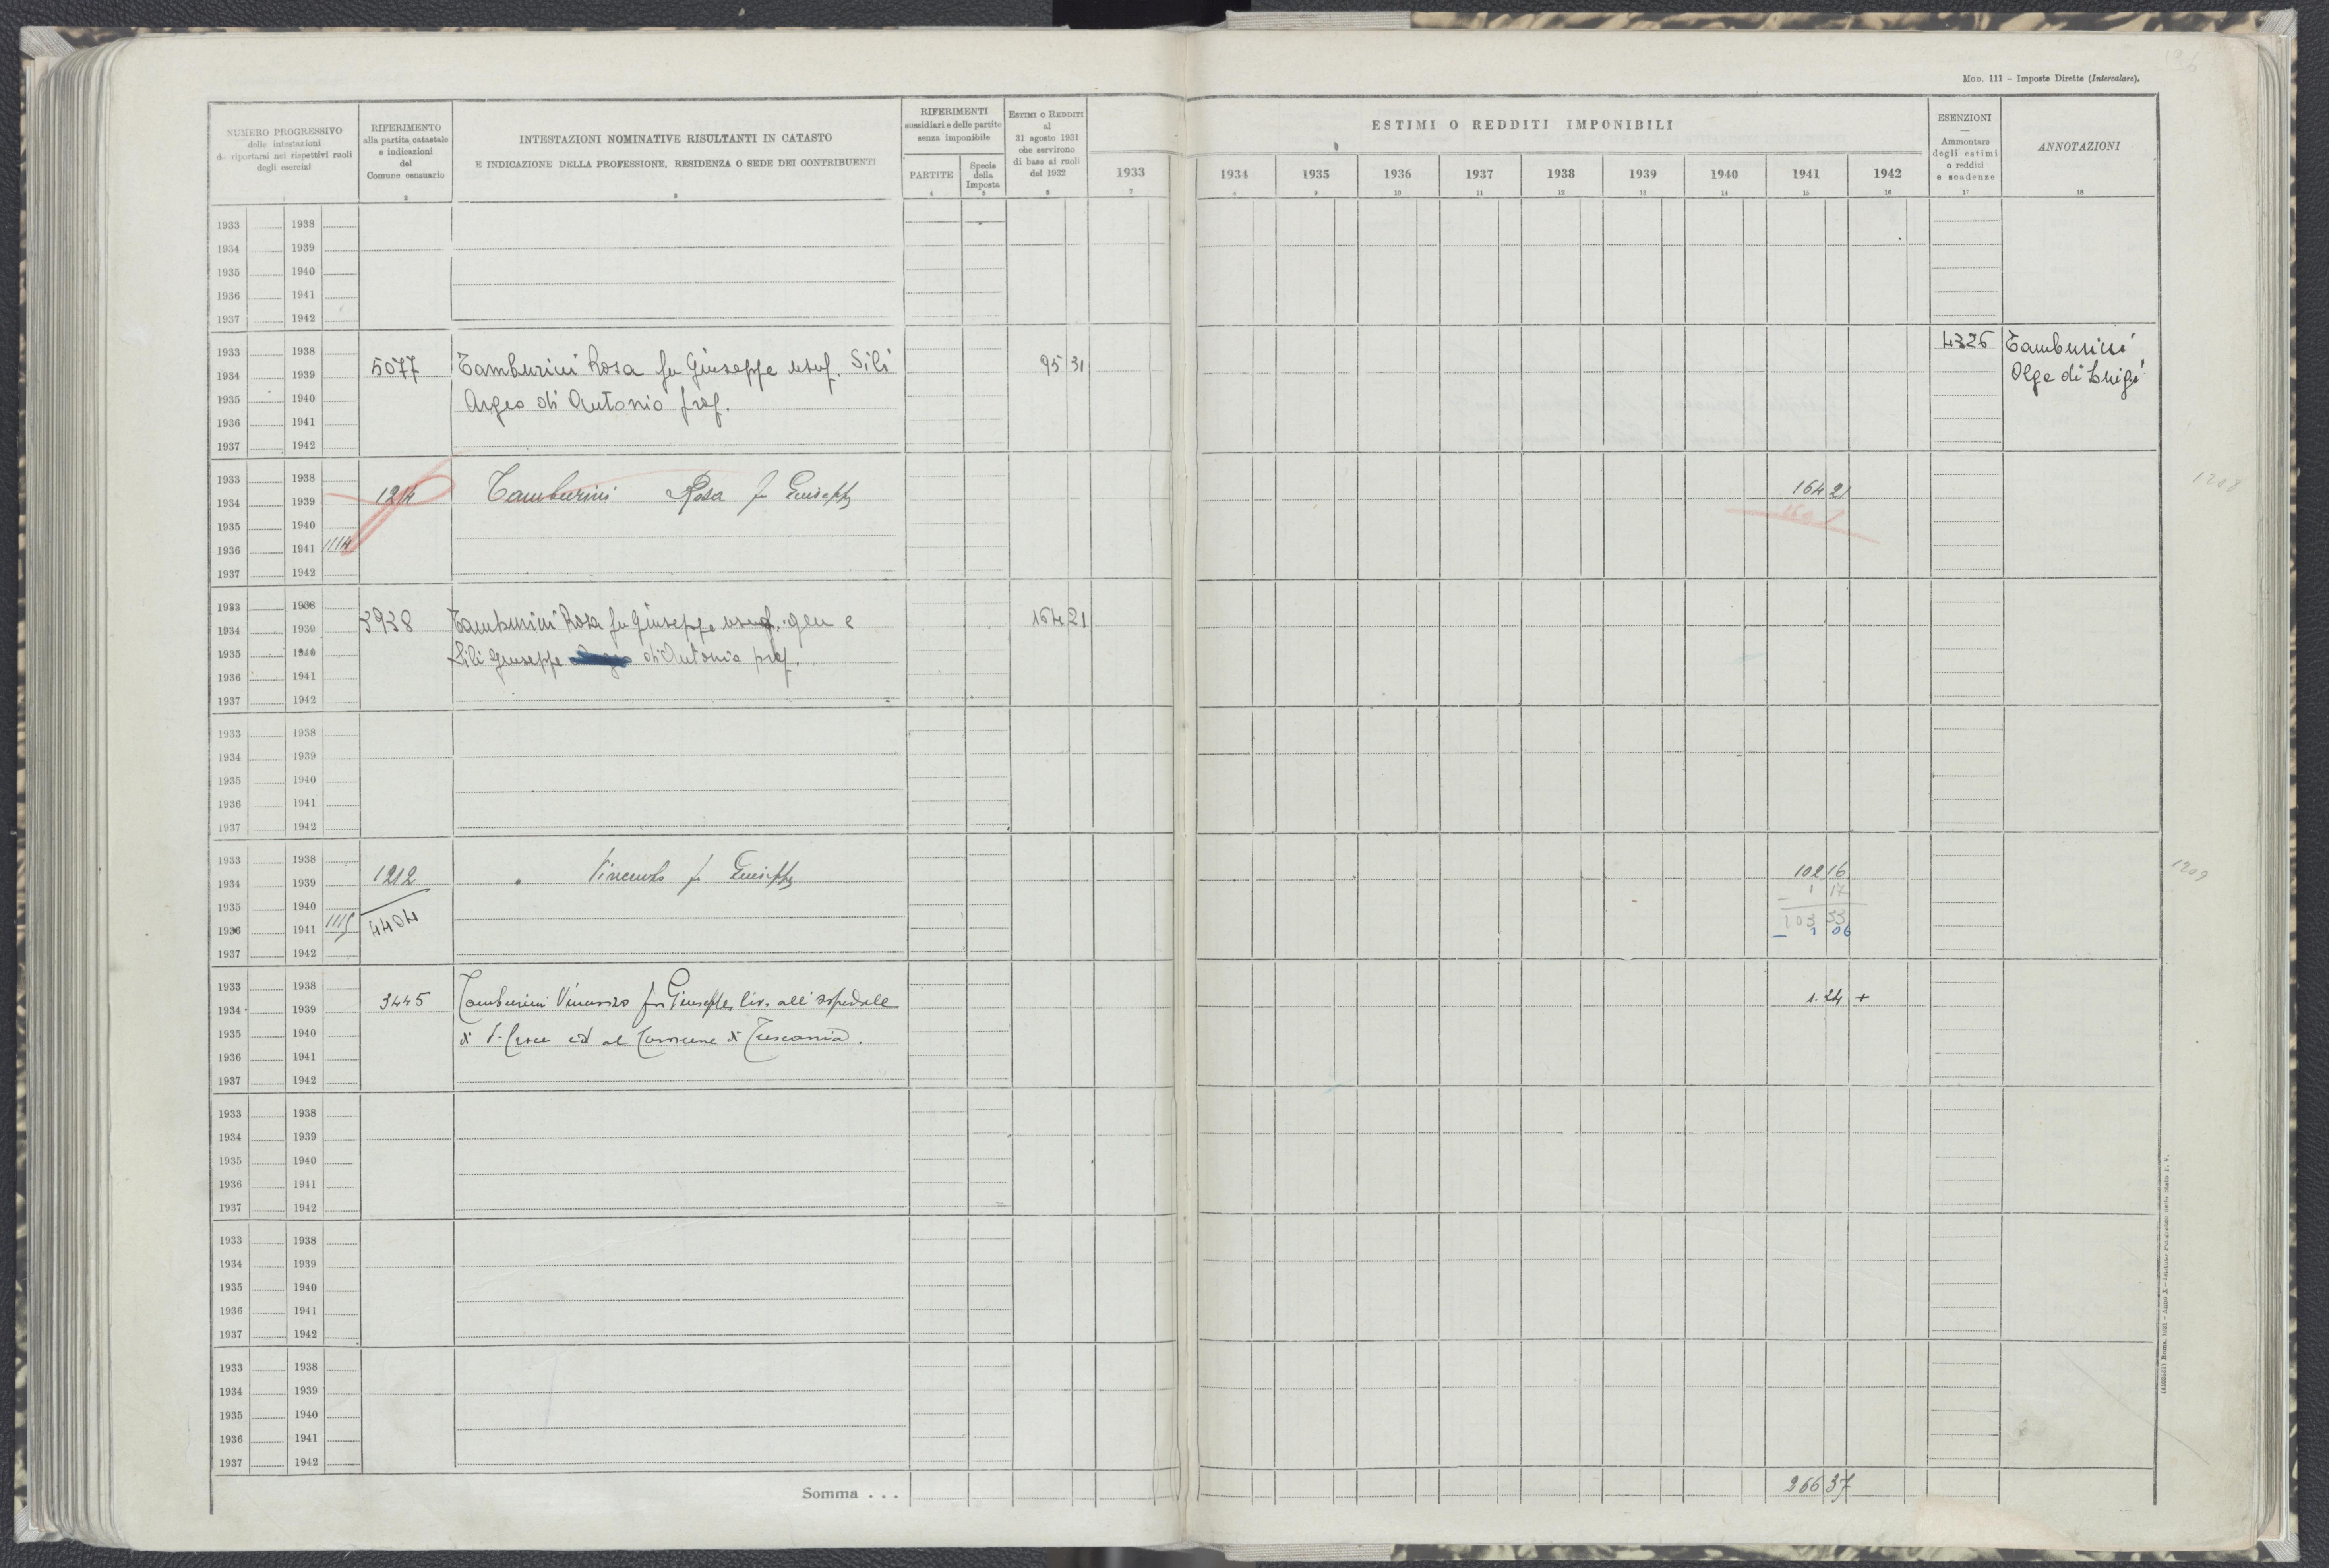 196
MOD. 111 – Imposte Dirette (Intercalare).
NUMERO PROGRESSIVO
delle intestazioni
da riportarsi nei rispettivi ruoli
degli esercizi
1
RIFERIMENTO
alla partita catastale
e indicazioni
del
Comune censuario
2
INTESTAZIONI NOMINATIVE RISULTANTI IN CATASTO
E INDICAZIONE DELLA PROFESSIONE, RESIDENZA O SEDE DEI CONTRIBUENTI
3
RIFERIMENTI
sussidiari e delle partite
senza imponibile
PARTITE
4
Specie
della
Imposta
5
ESTIMI O REDDITI
al
31 agosto 1931
che servirono
di base ai ruoli
del 1932
6
ESTIMI O REDDITI IMPONIBILI
1933 1934 1935 1936 1937 1938 1939 1940 1941 1942
7 8 9 10 11 12 13 14 15 16
ESENZIONI
—
Ammontare
degli estimi
o redditi
e scadenze
17
ANNOTAZIONI
18
1933 1938
1934 1939
1935 1940
1936 1941
1937 1942
1933 1938 4326 Tamburini
1934 1939 5077 Tamburini Rosa fu Giuseppe usuf. Sili 95 31 Olga di Luigi
1935 1940 Argeo di Antonio prop.
1936 1941
1937 1942
1933 1938
1934 1939 1214 Tamburini Rosa fu Giuseppe 164 21 1208
1935 1940
1936 1941 1114
1937 1942
1933 1938
1934 1939 3938 Tamburini Rosa fu Giuseppe usuf. gen e 164 21
1935 1940 Sili Giuseppe di Antonio prop.
1936 1941
1937 1942
1933 1938
1934 1939
1935 1940
1936 1941
1937 1942
1933 1938
1934 1939 1212 " Vincenzo fu Giuseppe 102 16 1209
1935 1940 1 17
1936 1941 1115 4404 103 33
1937 1942 – 1 06
1933 1938
1934 1939 3445 Tamburini Vincenzo fu Giuseppe liv. all'ospedale 1. 24 +
1935 1940 di S. Croce ed al Comune di Tuscania.
1936 1941
1937 1942
1933 1938
1934 1939
1935 1940
1936 1941
1937 1942
1933 1938
1934 1939
1935 1940
1936 1941
1937 1942
1933 1938
1934 1939
1935 1940
1936 1941
1937 1942
Somma . . . 266 37